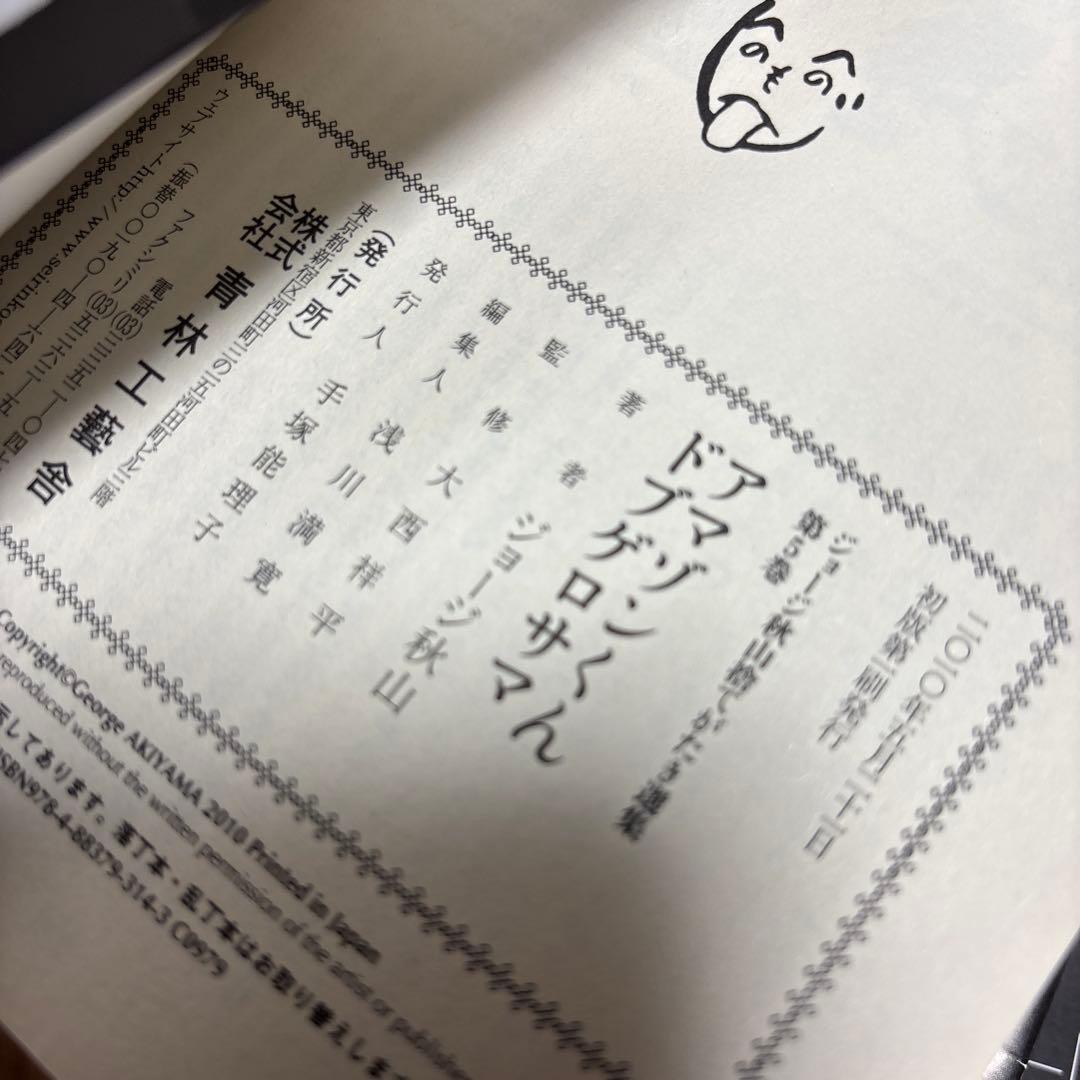 へのへの
も
二〇一〇年六月二十一日
初版第一刷発行
ジョージ秋山捨てがたき選集
第5巻
アマゾンくん
ドブゲロサマ
著者 ジョージ秋山
監修 大西祥平
編集人 浅川満寛
発行人 手塚能理子
(発行所)
東京都新宿区河田町三の五河田町ビル三階
株式会社 青林工藝舎
電話(03)
ファクシミリ(03)
(振替〇〇一九〇ー四ー
ウェブサイトhttp://www.seirinko
Copyright©George AKIYAMA 2010 Printed in Japan
reproduced without the written permission of the artist or publisher
示してあります。落丁本・乱丁本はお取り替えします
ISBN978-4-88379-314-3 C0979